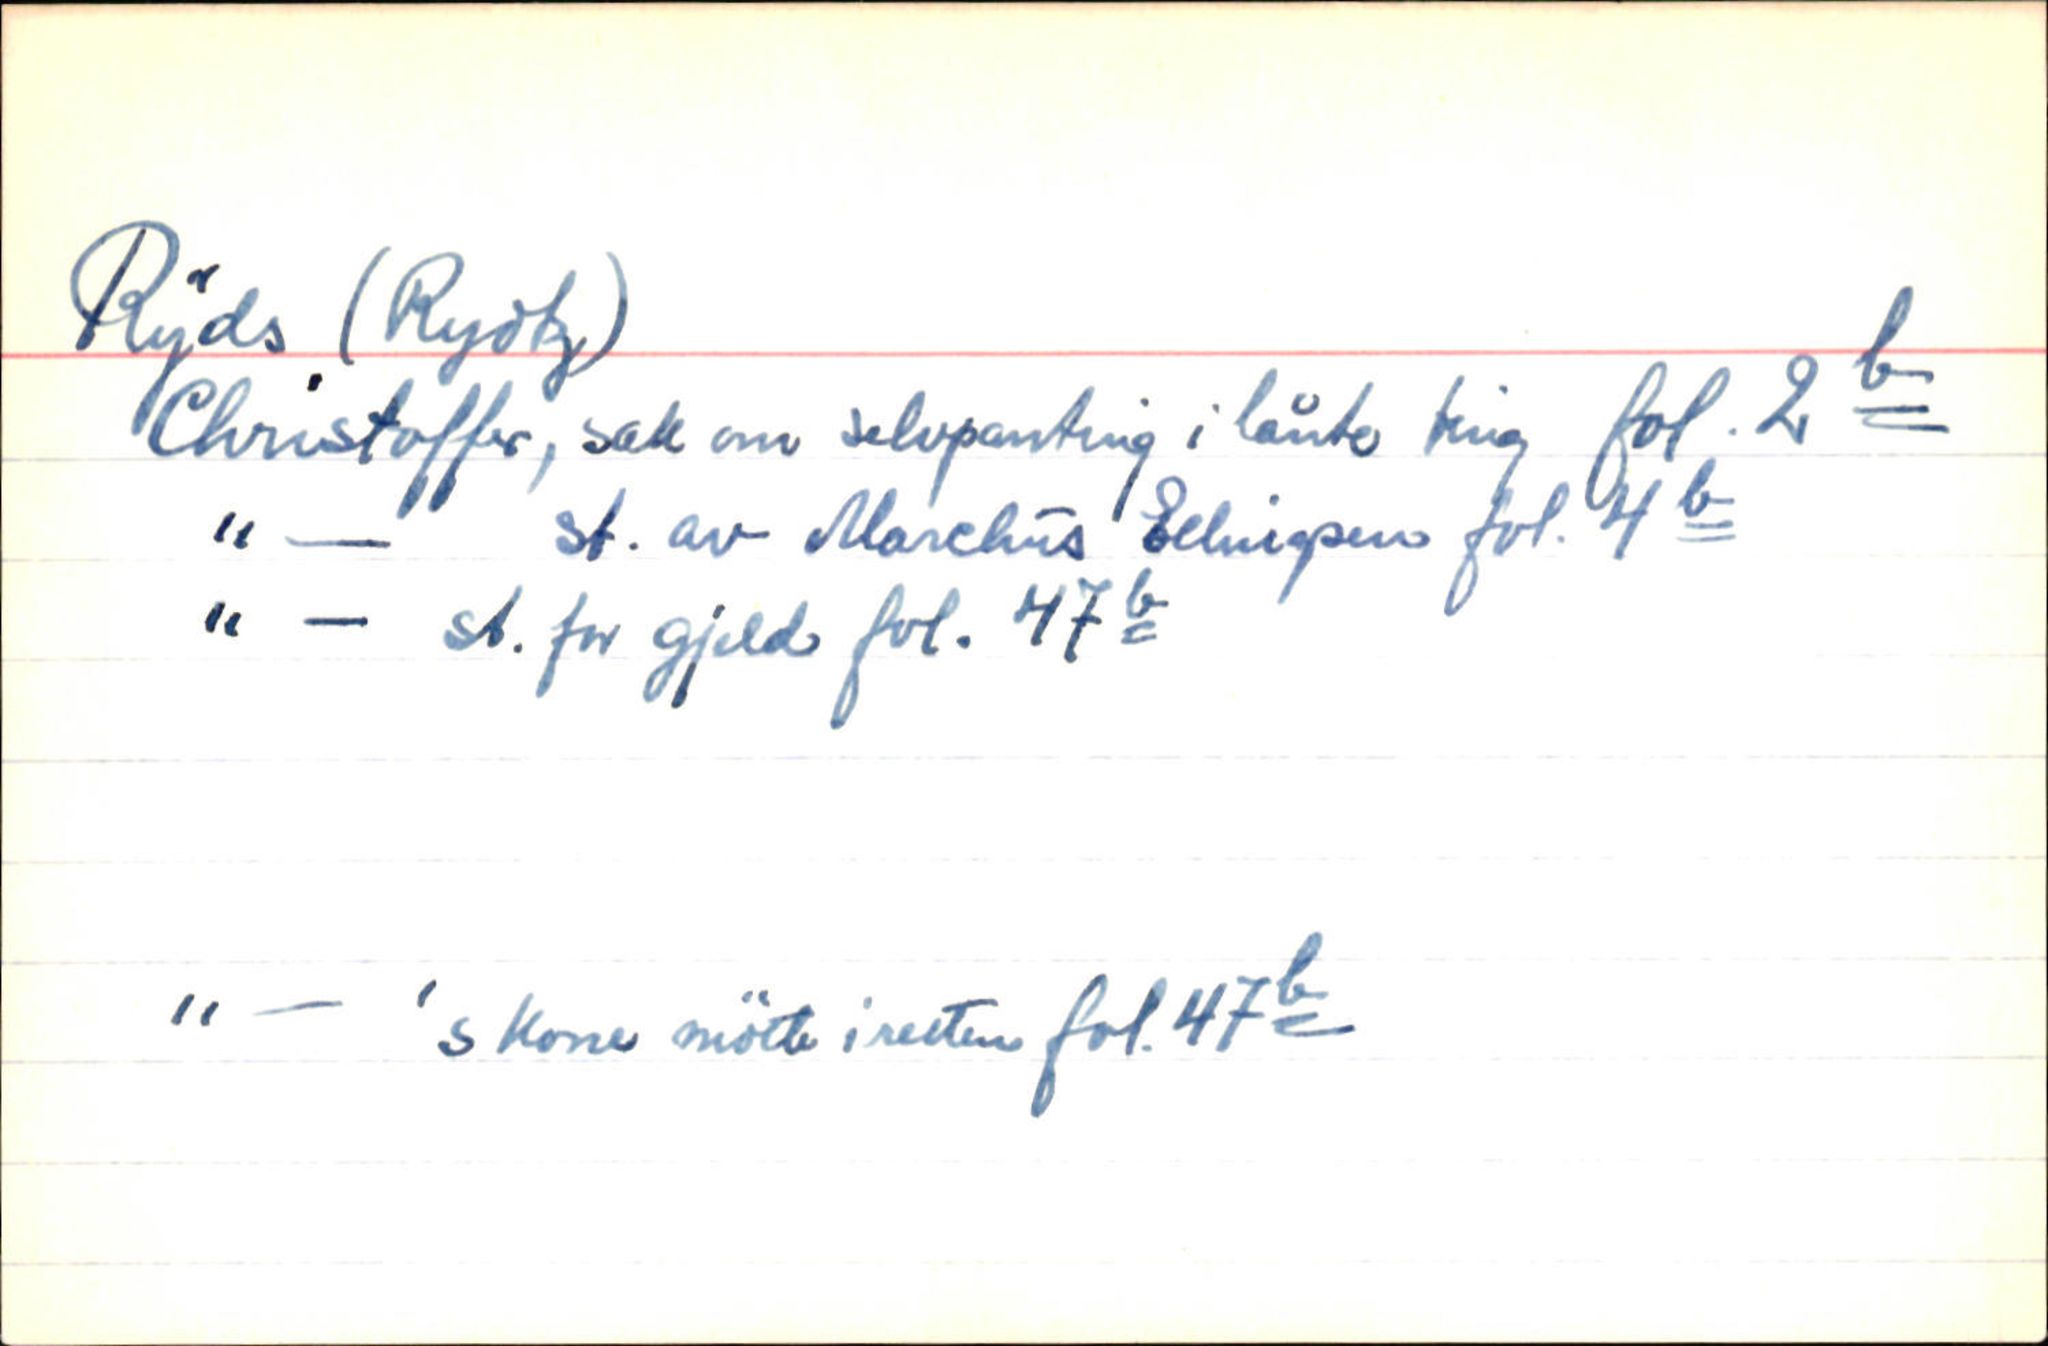 Ryds (Rydtz)
Christoffer, sak om selvpanting i lånte ting fol. 2 b
"— st. av Marchus fol. 4 b
"— st. for gjeld fol. 47 b
"— 's kone mötte i retten fol. 47 b